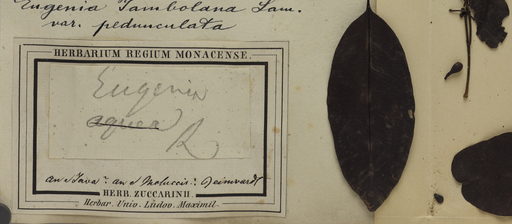 Eugenia Jambolana Lam.
var. pedunculata
HERBARIUM REGIUM MONACENSE.
Eugenia
aquea
R
an e Java? an e Moluccis? Reinwardt
HERB. ZUCCARINII.
Herbar. Univ. Ludov. Maximil.